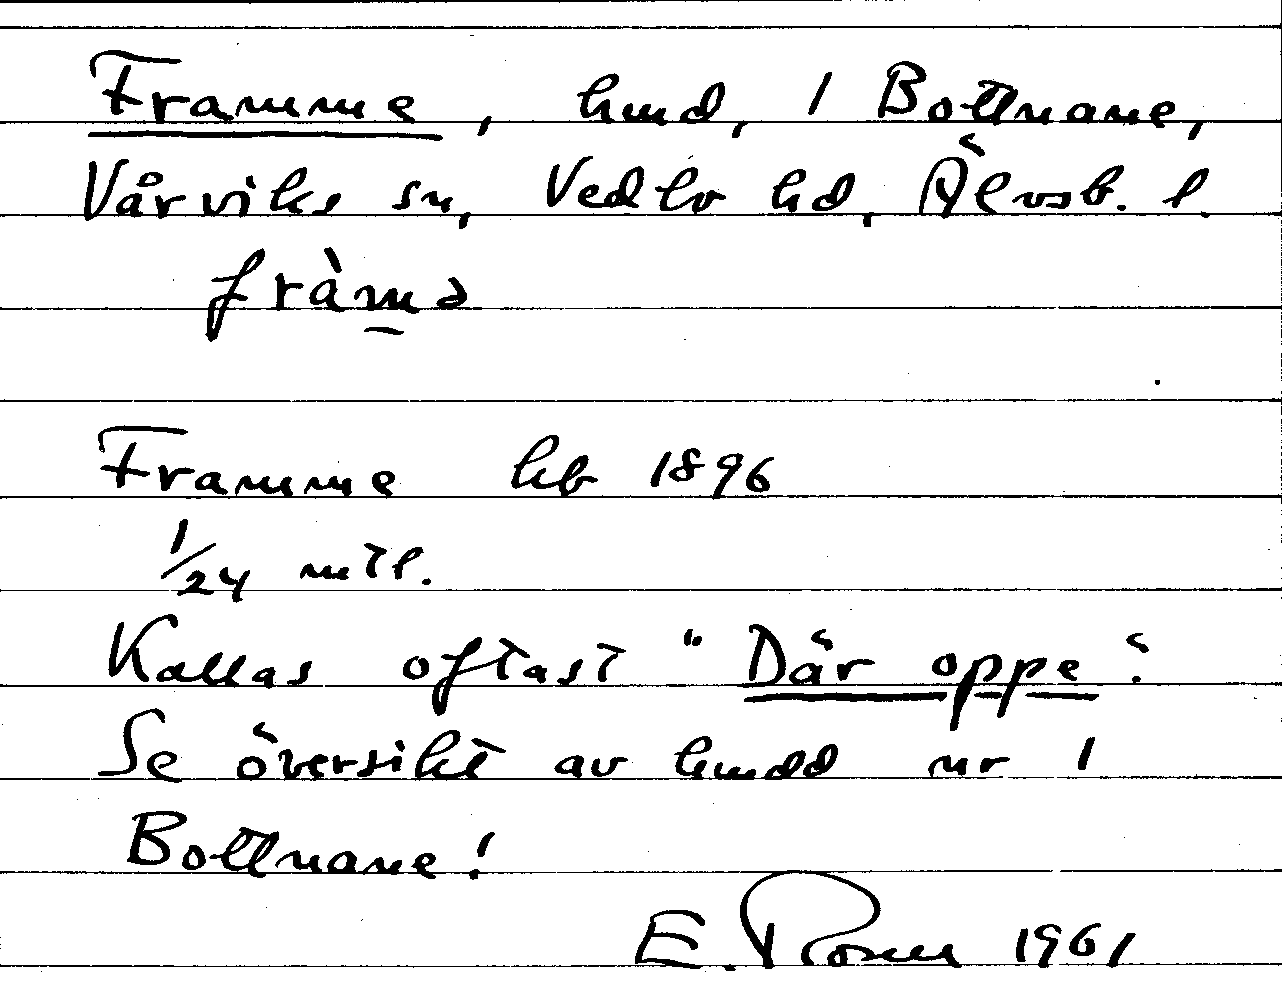 Framme, hmd, 1 Bottnane,
Vårviks sn, Vedbo hd, Älvsb. l.
fràmə
Framme hb 1896
1/24 mtl.
Kallas oftast "Där oppe".
Se översikt av hmdd nr 1
Bottnane!
E. Rosén 1961